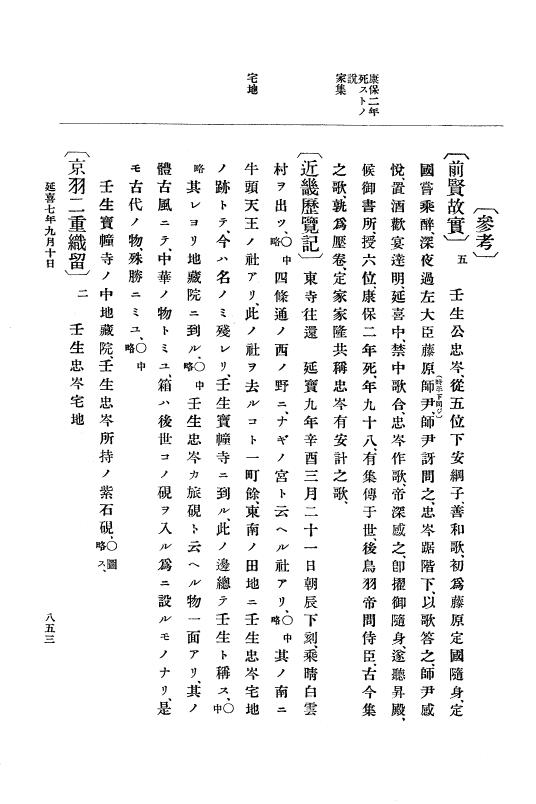 〔參考〕
〔前賢故實〕五　壬生公忠岑、從五位下安綱子、善和歌、初爲藤原定國隨身、定
國嘗乘醉深夜過左大臣藤原師尹、師尹訝問之、忠岑踞階下、以歌答之、師尹感
（時平、下同ジ）
悅、置酒歡宴達明、延喜中、禁中歌合、忠岑作歌、帝深感之、卽擢御隨身、遂聽昇殿、
候御書所、授六位、康保二年死、年九十八、有集傳于世、後鳥羽帝問侍臣、古今集
之歌孰爲壓卷、定家家隆共稱忠岑有安計之歌、
〔近畿歷覽記〕東寺往還　延寶九年辛酉三月二十一日朝辰下刻、乘晴白雲
村ヲ出ツ、〇中略四條通ノ西ノ野ニ、ナギノ宮ト云ヘル社アリ、〇中略其ノ南ニ
牛頭天王ノ社アリ、此ノ社ヲ去ルコト一町餘、東南ノ田地ニ壬生忠岑宅地
ノ跡トテ、今ハ名ノミ殘レリ、壬生寶幢寺ニ到ル、此ノ邊總テ壬生ト稱ス、〇中
略其レヨリ地藏院ニ到ル、〇中略壬生忠岑カ旅硯ト云ヘル物一面アリ、其ノ
體古風ニテ、中華ノ物トミユ、箱ハ後世コノ硯ヲ入ル爲ニ設ルモノナリ、是
モ古代ノ物、殊勝ニミユ、〇中略
壬生寶幢寺ノ中地藏院、壬生忠岑所持ノ紫石硯、〇圖略ス、
〔京羽二重織留〕二　壬生忠岑宅地
康保二年
死ストノ
說
家集
宅地
延喜七年九月十日
八五三